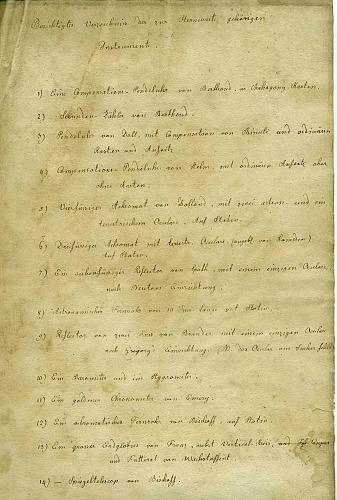 Berichtigtes Verzeichnis der zur Sternwarte gehörigen
Instrumente.
1) Eine Compensations-Pendeluhr von Berthoud, in Kasten.
2) Sekunden-Zähler von Berthoud.
3) Pendeluhr von mit Compensation von und ordinären
Kasten und Aufsatz.
4) Compensations-Pendeluhr von mit ordinären Aufsatz aber
ohne Kasten.
5) Achromat von Dollond, mit zwei astron. und ein
terrestrischen Oculare, auf Stativ.
6) Dreifüßiger Achromat mit Ocular von Ramsden)
auf Stativ.
7) Ein siebenfüßiger Reflector von mit einem einzigen Oculare,
nach Neutons Einrichtung.
8) Astronomisches Fernrohr von 10 Fuss Länge mit Stativ.
9) Reflector von zwei Fuss von Brander mit einem einzigen Oculare
nach Gregorys Einrichtung (NB. das Ocular am Sucher fehlt)
10) Ein Barometer und ein Hygrometer.
11) Ein goldener Chronometer von Emery.
12) Ein achromatisches Fernrohr von Bischoff, auf Stativ.
13) Ein grosser Erdglobus von Franz, nebst Vertical-Kreis, und
und Futteral von Wachstaffent.
14) — Spiegeltelescop von Bischoff.